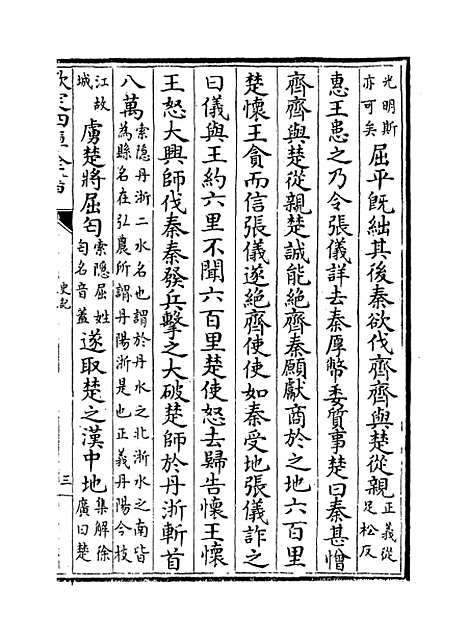 光明斯
亦可矣
屈平既絀其後秦欲伐齊齊與楚從親
正義從
足松反
惠王患之乃令張儀詳去秦厚幣委質事楚曰秦甚憎
齊齊與楚從親楚誠能絶齊秦願獻商於之地六百里
楚懷王貪而信張儀遂絶齊使使如秦受地張儀詐之
曰儀與王約六里不聞六百里楚使怒去歸告懷王懷
王怒大興師伐秦秦發兵擊之大破楚師於丹淅斬首
八萬
索隱丹淅二水名也謂於丹水之北淅水之南皆
為縣名在弘農所謂丹陽淅是也正義丹陽今枝
江故
城
虜楚將屈匄
索隱屈姓
匄名音蓋
遂取楚之漢中地
集解徐
廣曰楚
欽定四庫全書
史記
三